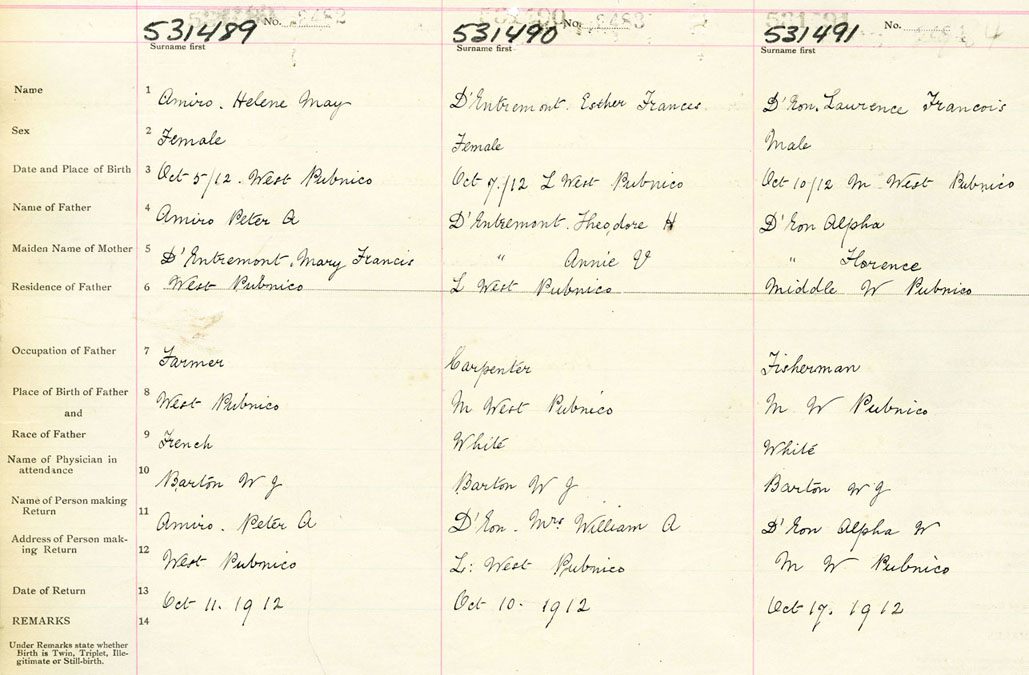 531489 No. 2482 531490 No. 2483 531491 No.
Surname first Surname first Surname first
Name 1 Amiro. Helene May D'Entremont. Esther Frances D'Eon. Lawrence Francois
Sex 2 Female Female Male
Date and Place of Birth 3 Oct 5/12. West Pubnico Oct 7./12 L West Pubnico Oct 10/12 M West Pubnico
Name of Father 4 Amiro Peter A D'Entremont. Theodore H D'Eon Alpha
Maiden Name of Mother 5 D'Entremont. Mary Francis " Annie V " Florence
Residence of Father 6 West Pubnico L West Pubnico Middle W Pubnico
Occupation of Father 7 Farmer Carpenter Fisherman
Place of Birth of Father 8 West Pubnico M West Pubnico M W Pubnico
and
Race of Father 9 French White White
Name of Physician in
attendance 10 Barton W J Barton W J Barton W J
Name of Person making
Return 11 Amiro. Peter A D'Eon. Mrs William A D'Eon Alpha W
Address of Person mak-
ing Return 12 West Pubnico L: West Pubnico M W Pubnico
Date of Return 13 Oct 11. 1912 Oct 10. 1912 Oct 17. 1912
REMARKS 14
Under Remarks state whether
Birth is Twin, Triplet, Ille-
gitimate or Still-birth.